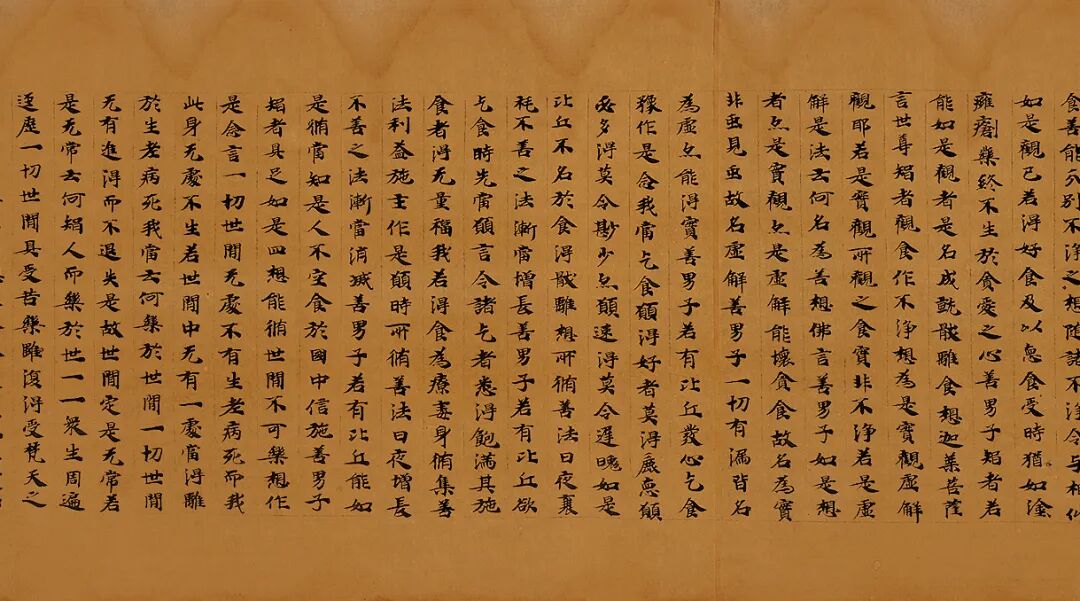 食善能分別不淨之想隨諸不淨令与相似
如是觀已若得好食及以惡食受時猶如塗
癰瘡藥終不生於貪愛之心善男子智者若
能如是觀者是名成就猒離食想迦葉菩薩
言世尊智者觀食作不淨想為是實觀虛解
觀耶若是實觀所觀之食實非不淨若是虛
解是法云何名為善想佛言善男子如是想
者亦是實觀亦是虛解能壞貪食故名為實
非虫見虫故名虛解善男子一切有漏皆名
為虛亦能得實善男子若有比丘發心乞食
豫作是念我當乞食願得好者莫得麁惡願
必多得莫令尠少亦願速得莫令遲晚如是
比丘不名於食得猒離想所脩善法日夜衰
耗不善之法漸當增長善男子若有比丘欲
乞食時先當願言令諸乞者悉得飽滿其施
食者得无量福我若得食為療毒身脩集善
法利益施主作是願時所脩善法日夜增長
不善之法漸當消滅善男子若有比丘能如
是脩當知是人不空食於國中信施善男子
智者具足如是四想能脩世間不可樂想作
是念言一切世間无處不有生老病死而我
此身无處不生若世間中无有一處當得離
於生老病死我當云何樂於世間一切世間
无有進得而不退失是故世間定是无常若
是无常云何智人而樂於世一一衆生周遍
逕歷一切世間具受苦樂雖復得受梵天之